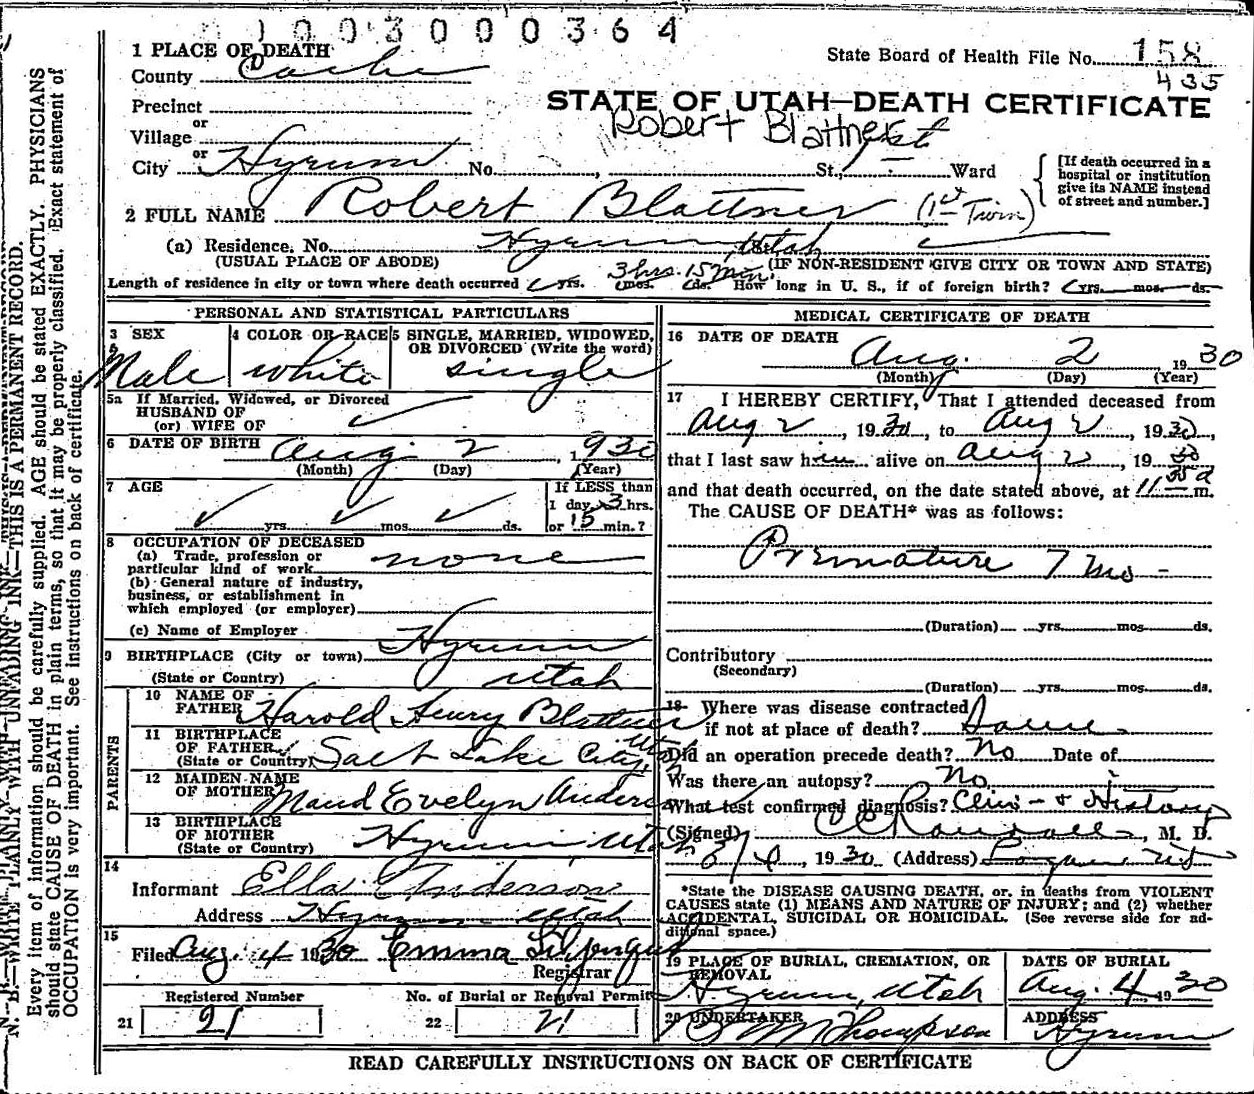 1003000364
1 PLACE OF DEATH
County Cache
State Board of Health File No. 158
435
Precinct
or
Village
or
City Hyrum No. St., Ward
STATE OF UTAH—DEATH CERTIFICATE
Robert Blattner 1st
[If death occurred in a hospital or institution give its NAME instead of street and number.]
2 FULL NAME Robert Blattner (1st Twin)
(a) Residence. No. Hyrum, Utah St.
(USUAL PLACE OF ABODE) (IF NON-RESIDENT GIVE CITY OR TOWN AND STATE)
Length of residence in city or town where death occurred yrs. 3 hrs. 15 Min. mos. ds. How long in U. S., if of foreign birth? yrs. mos. ds.
PERSONAL AND STATISTICAL PARTICULARS
3 SEX
Male
4 COLOR OR RACE
white
5 SINGLE, MARRIED, WIDOWED, OR DIVORCED (Write the word)
single
5a If Married, Widowed, or Divorced
HUSBAND OF
(or) WIFE OF
6 DATE OF BIRTH Aug. 2, 1930
(Month) (Day) (Year)
7 AGE
yrs. mos. ds.
If LESS than
1 day 3 hrs.
or 15 min.?
8 OCCUPATION OF DECEASED
(a) Trade, profession or
particular kind of work none
(b) General nature of industry,
business, or establishment in
which employed (or employer)
(c) Name of Employer
9 BIRTHPLACE (City or town) Hyrum
(State or Country) Utah
PARENTS
10 NAME OF
FATHER Harold Henry Blattner
11 BIRTHPLACE
OF FATHER
(State or Country) Salt Lake City Utah
12 MAIDEN NAME
OF MOTHER Maud Evelyn Anderson
13 BIRTHPLACE
OF MOTHER
(State or Country) Hyrum Utah
14
Informant Ella Anderson
Address Hyrum Utah
15
Filed Aug. 4 1930 Emma
Registrar
Registered Number
21 21
No. of Burial or Removal Permit
22 21
MEDICAL CERTIFICATE OF DEATH
16 DATE OF DEATH
Aug. 2 1930
(Month) (Day) (Year)
17 I HEREBY CERTIFY, That I attended deceased from
Aug 2, 1930, to Aug 2, 1930,
that I last saw him alive on Aug 2, 1930
and that death occurred, on the date stated above, at 11 35 a m.
The CAUSE OF DEATH* was as follows:
Premature 7 Mo -
(Duration) yrs. mos. ds.
Contributory
(Secondary)
(Duration) yrs. mos. ds.
18 Where was disease contracted
if not at place of death? Same
Did an operation precede death? No Date of
Was there an autopsy? No
What test confirmed diagnosis? Clin - + History
(Signed) C C Randall, M. D.
8/4, 1930 (Address) Logan Ut
*State the DISEASE CAUSING DEATH, or, in deaths from VIOLENT
CAUSES state (1) MEANS AND NATURE OF INJURY; and (2) whether
ACCIDENTAL, SUICIDAL OR HOMICIDAL. (See reverse side for ad-
ditional space.)
19 PLACE OF BURIAL, CREMATION, OR
REMOVAL
Hyrum, Utah
DATE OF BURIAL
Aug. 4, 1930
20 UNDERTAKER
Thompson
ADDRESS
Hyrum
READ CAREFULLY INSTRUCTIONS ON BACK OF CERTIFICATE
N. B.—WRITE PLAINLY WITH UNFADING INK—THIS IS A PERMANENT RECORD.
Every item of information should be carefully supplied. AGE should be stated EXACTLY. PHYSICIANS
should state CAUSE OF DEATH in plain terms, so that it may be properly classified. Exact statement of
OCCUPATION is very important. See instructions on back of certificate.